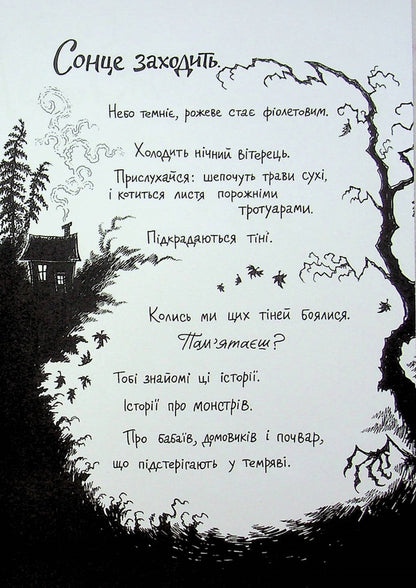 Сонце заходить.
Небо темніє, рожеве стає фіолетовим.
Холодить нічний вітерець.
Прислухайся: шепочуть трави сухі,
і котиться листя порожніми
тротуарами.
Підкрадаються тіні.
Колись ми цих тіней боялися.
Пам'ятаєш?
Тобі знайомі ці історії.
Історії про монстрів.
Про бабаїв, домовиків і почвар,
що підстерігають у темряві.